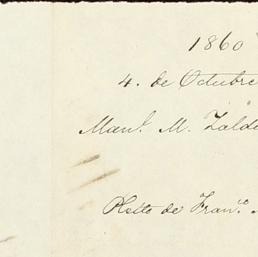 1860
4. de Octubre
Manl. M. Zalde
Pleito de Franco.